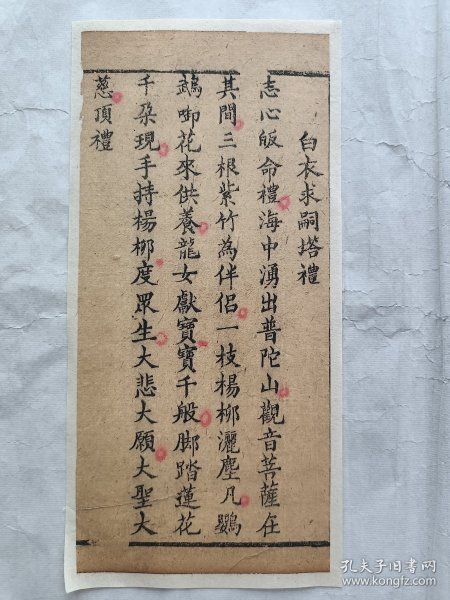 白衣求嗣塔禮
志心皈命禮海中湧出普陀山觀音菩薩在
其間三根紫竹為伴侶一枝楊柳灑塵凡鸚
鵡啣花來供養龍女獻寶寶千般脚踏蓮花
千朶現手持楊柳度眾生大悲大願大聖大
慈頂禮
孔夫子旧书网
www.kongfz.com